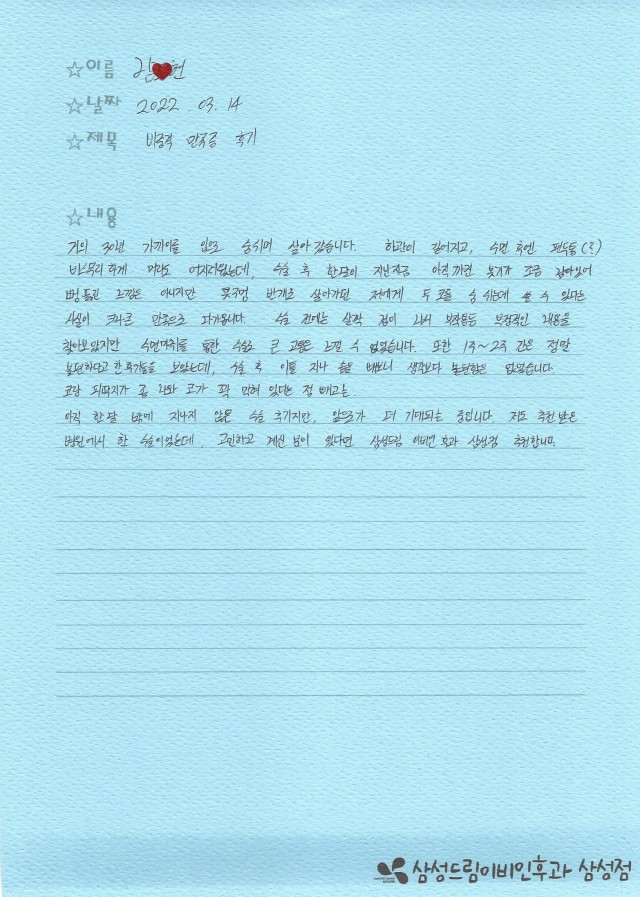 ☆이름 김❤헌
☆날짜 2022. 03. 14
☆제목 비중격 만곡증 후기
☆내용
거의 30년 가까이를 입으로 숨쉬며 살아 갔습니다. 하관이 길어지고, 수면 후엔 편두통(?)
비스무리하게 머리도 어지러웠는데, 수술 후 한달이 지난 지금 아직까진 붓기가 조금 남아있어
뻥 뚫린 느낌은 아니지만 콧구멍 반개로 살아가던 저에게 두 코로 숨 쉬는데 쓸 수 있다는
사실이 크나큰 만족으로 다가옵니다. 수술 전에는 살짝 겁이 나서 부작용등 부정적인 내용을
찾아보았지만 수면마취를 통한 수술로 큰 고통은 느낄 수 없었습니다. 또한 1주~2주 간은 정말
불편하다고 한 후기들을 보았는데, 수술 후 이틀 지나 솜을 빼보니 생각보다 불편함은 없었습니다.
코랑 피딱지가 좀 나와 코가 꽉 막혀 있다는 점 빼고는.
아직 한달 밖에 지나지 않은 수술 후기지만, 앞으로가 더 기대되는 중입니다. 저도 추천 받은
병원에서 한 수술이었는데, 고민하고 계신 분이 있다면 삼성드림 이비인후과 삼성점 추천합니다.
삼성드림이비인후과 삼성점